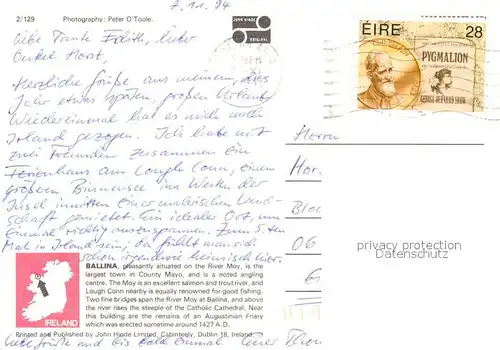 7.11.94
2/129 Photography: Peter O'Toole.
JOHN HINDE
ORIGINAL
ÉIRE 28
PYGMALION
GEORGE BERNARD SHAW
Liebe Tante Edith, lieber
Onkel Horst,
Herzliche Grüße aus meinem, dies
Jahr etwas späten, großen Urlaub.
Wiedereinmal hat es mich nach
Irland gezogen. Ich habe mit
zwei Freunden zusammen ein
Ferienhaus am Lough Conn, einem
großen Binnensee im Westen der
Insel inmitten einer malerischen Land-
schaft gemietet. Ein idealer Ort, um
einmal richtig auszuspannen. Zum 5. ten
Mal in Irland sein, da fühlt man sich
schon irgendwie heimisch hier.
Herrn
Hor
Bloc
06
G
privacy protection
Datenschutz
IRELAND
BALLINA, pleasantly situated on the River Moy, is the
largest town in County Mayo, and is a noted angling
centre. The Moy is an excellent salmon and trout river, and
Lough Conn nearby is equally renowned for good fishing.
Two fine bridges span the River Moy at Ballina, and above
the river rises the steeple of the Catholic Cathedral. Near
this building are the remains of an Augustinian Friary
which was erected sometime around 1427 A.D.
Printed and Published by John Hinde Limited, Cabinteely, Dublin 18, Ireland.
Liebe Grüße und bis bald einmal Euer Thom